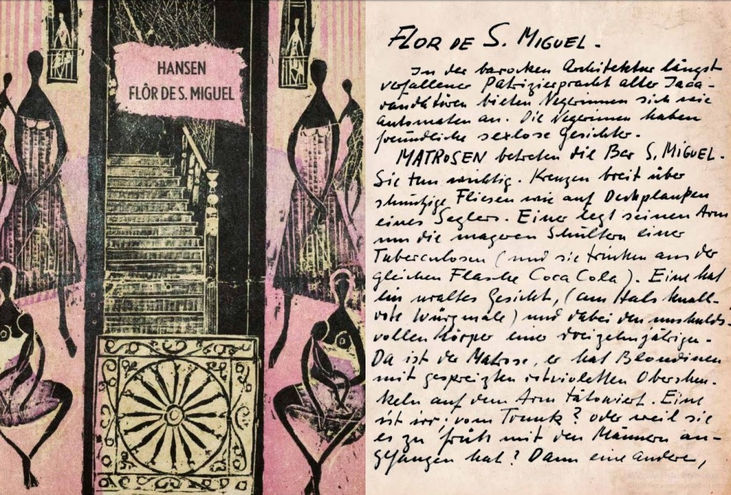 HANSEN
FLÔR DE S. MIGUEL
FLOR DE S. MIGUEL.
In der barocken Architektur längst
verfallener Patrizierpracht alter Jaca-
randatüren bieten Negerinnen sich wie
Automaten an. Die Negerinnen haben
freundliche sexlose Gesichter.
MATROSEN betreten die Bar S. MIGUEL.
Sie tun wichtig. Kreuzen breit über
schmutzige Fliesen wie auf Deckplanken
eines Seglers. Einer legt seinen Arm
um die mageren Schultern einer
Tuberculosen (und sie trinken aus der
gleichen Flasche Coca Cola). Eine hat
ein uraltes Gesicht, (am Hals knall-
rote Würgmale) und dabei den unschulds-
vollen Körper einer dreizehnjährigen.
Da ist der Matrose, er hat Blondinen
mit gespreizten rotvioletten Oberschen-
keln auf dem Arm tätowiert. Eine
ist irr; vom Trunk? oder weil sie
es zu früh mit den Männern an-
gefangen hat? Dann eine andere,